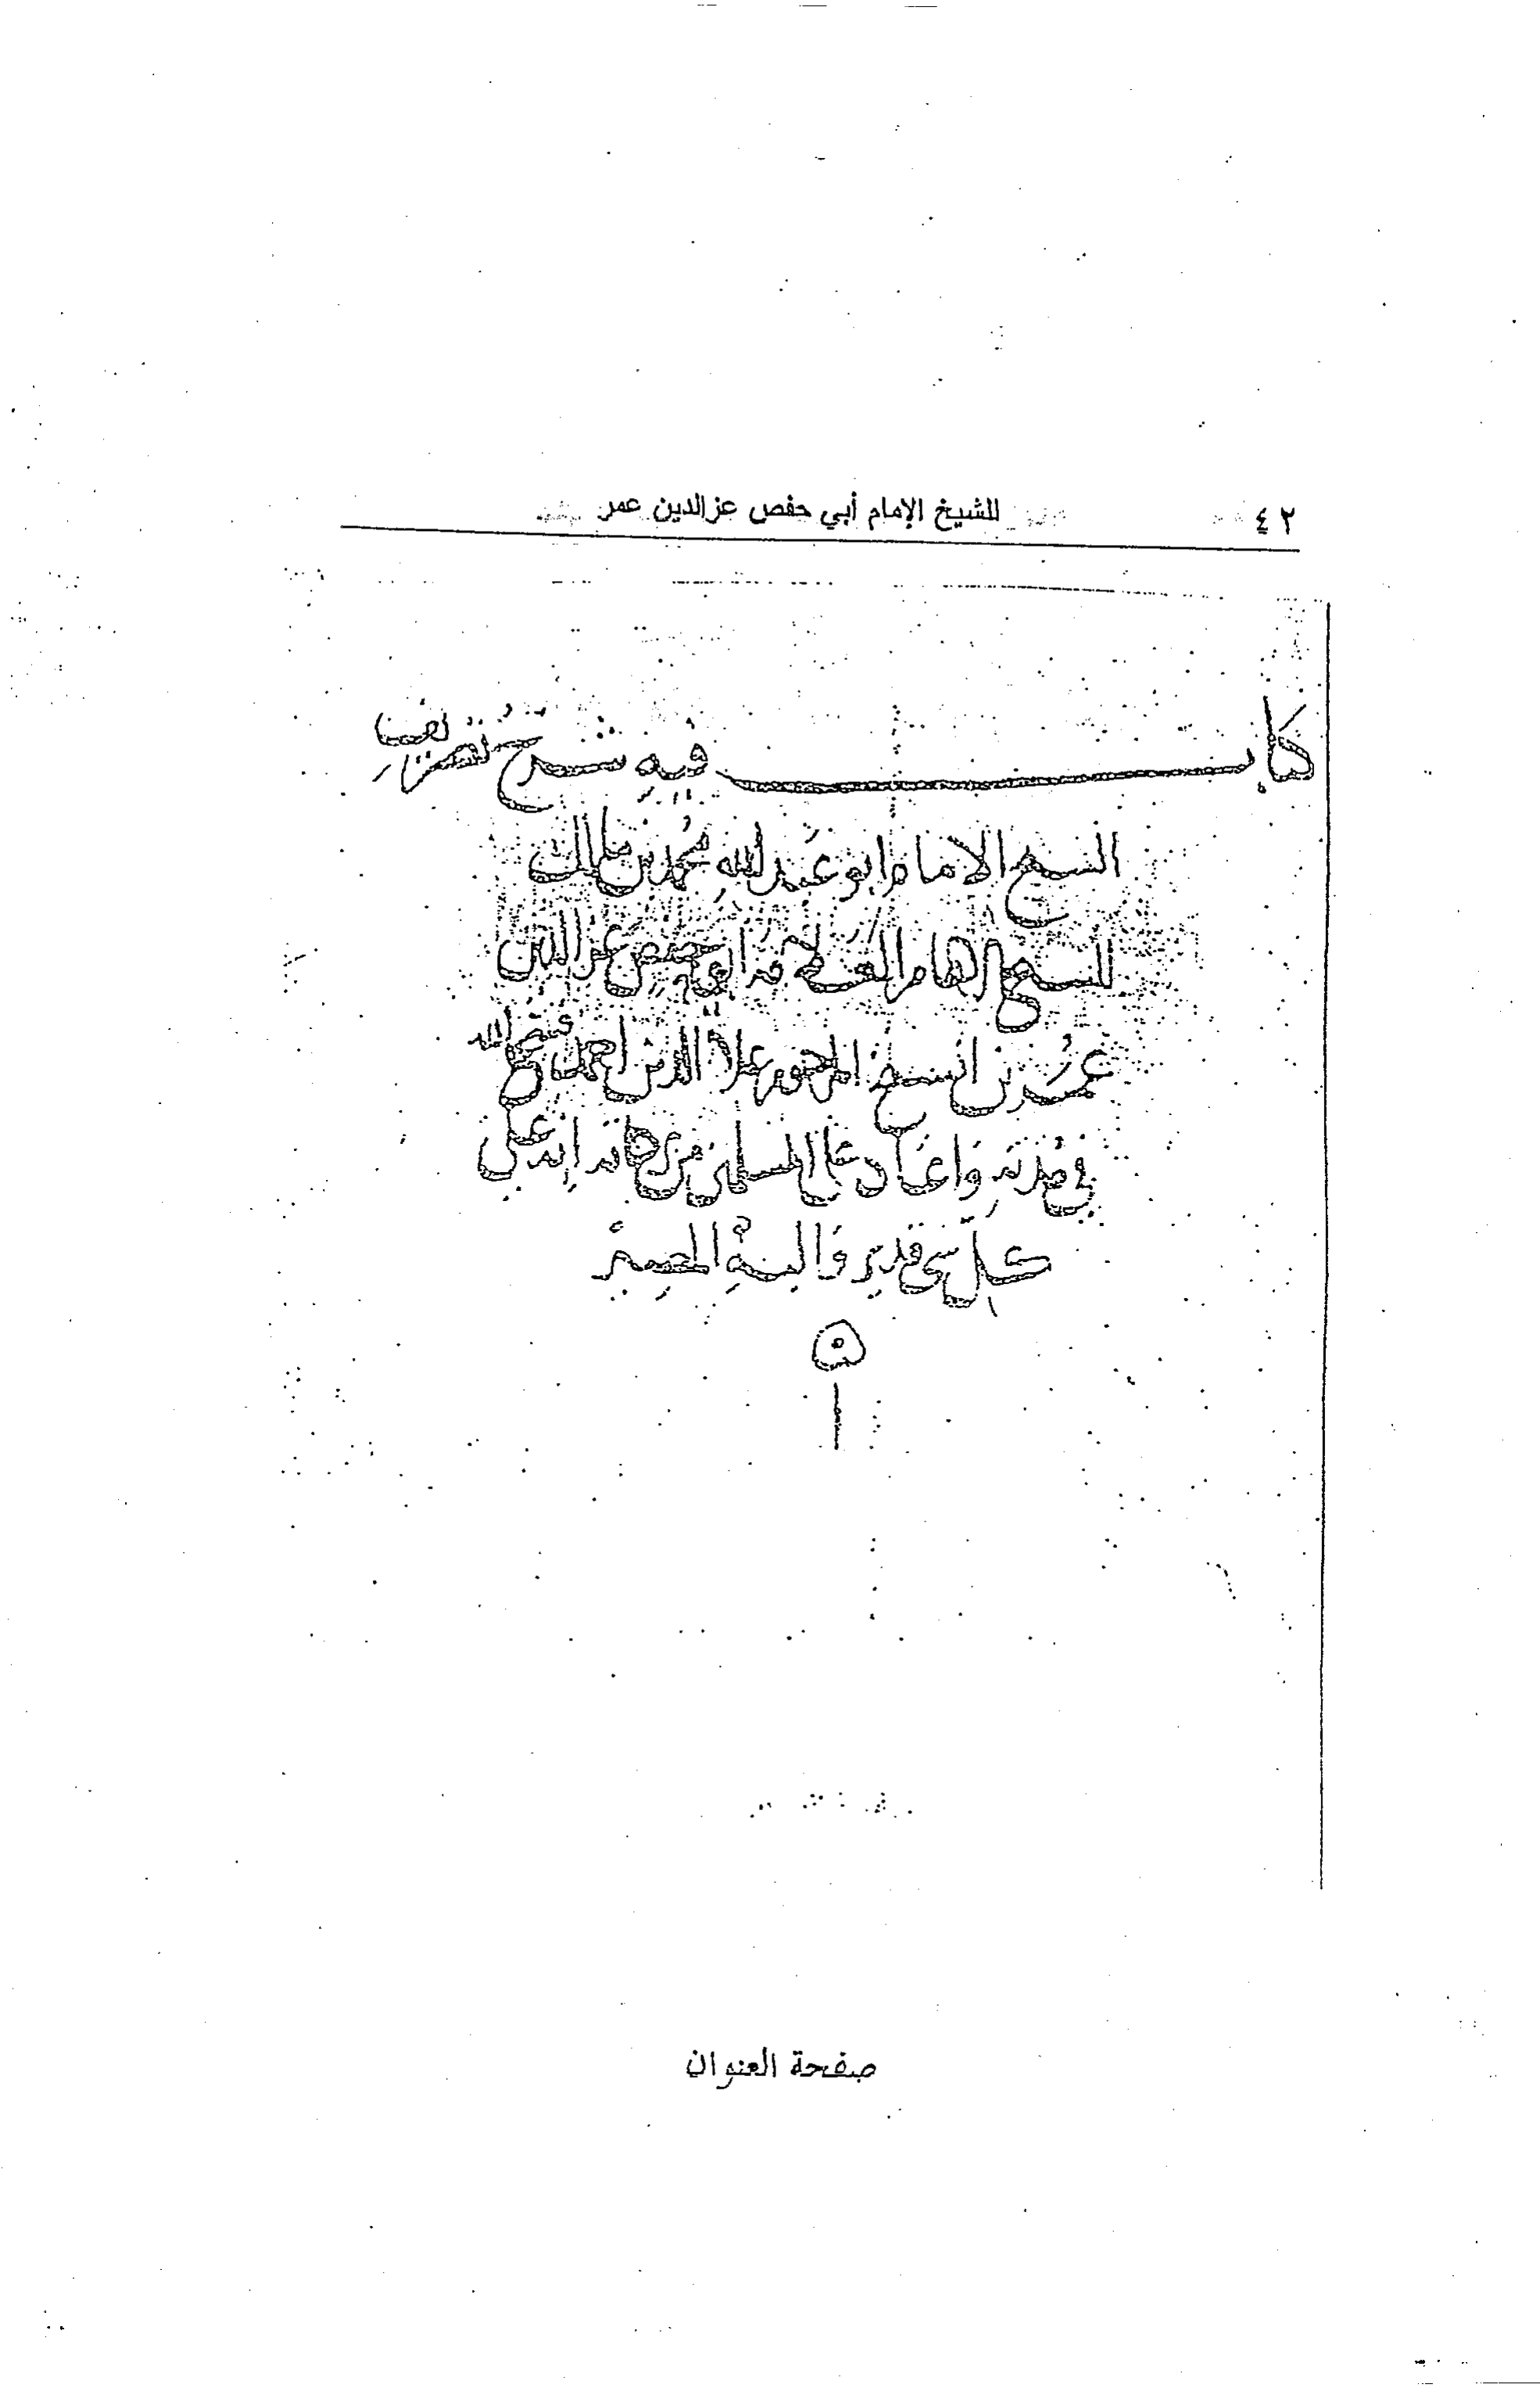 ٤٢ للشيخ الإمام أبي حفص عزالدين عمر
كتاب فيه شرح تصريف
الشيخ الامام ابو عبد الله محمد بن مالك
للشيخ الامام ابو حفص عز الدين
عمر بن الشيخ المرحوم علا الدين احمد فسح الله
في مدته واعاد على المسلمين من بركاته انه على
كل شي قدير والية المصير
صفحة العنوان